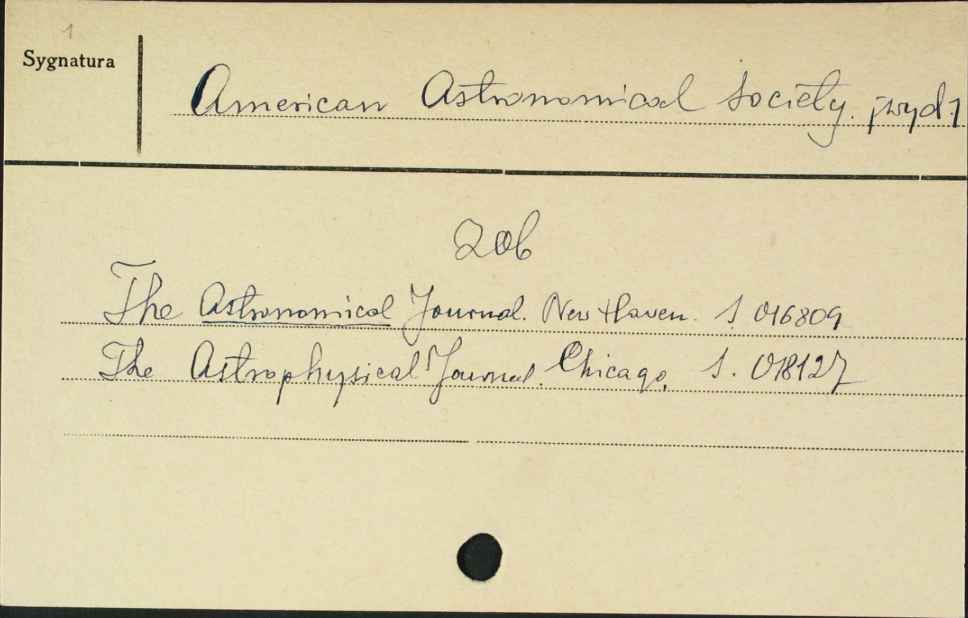 1
Sygnatura
American Astronomical Society. [wyd.]
Zob
The Astronomical Journal. New Haven. S 016809
The Astrophysical Journal. Chicago. S. 018127